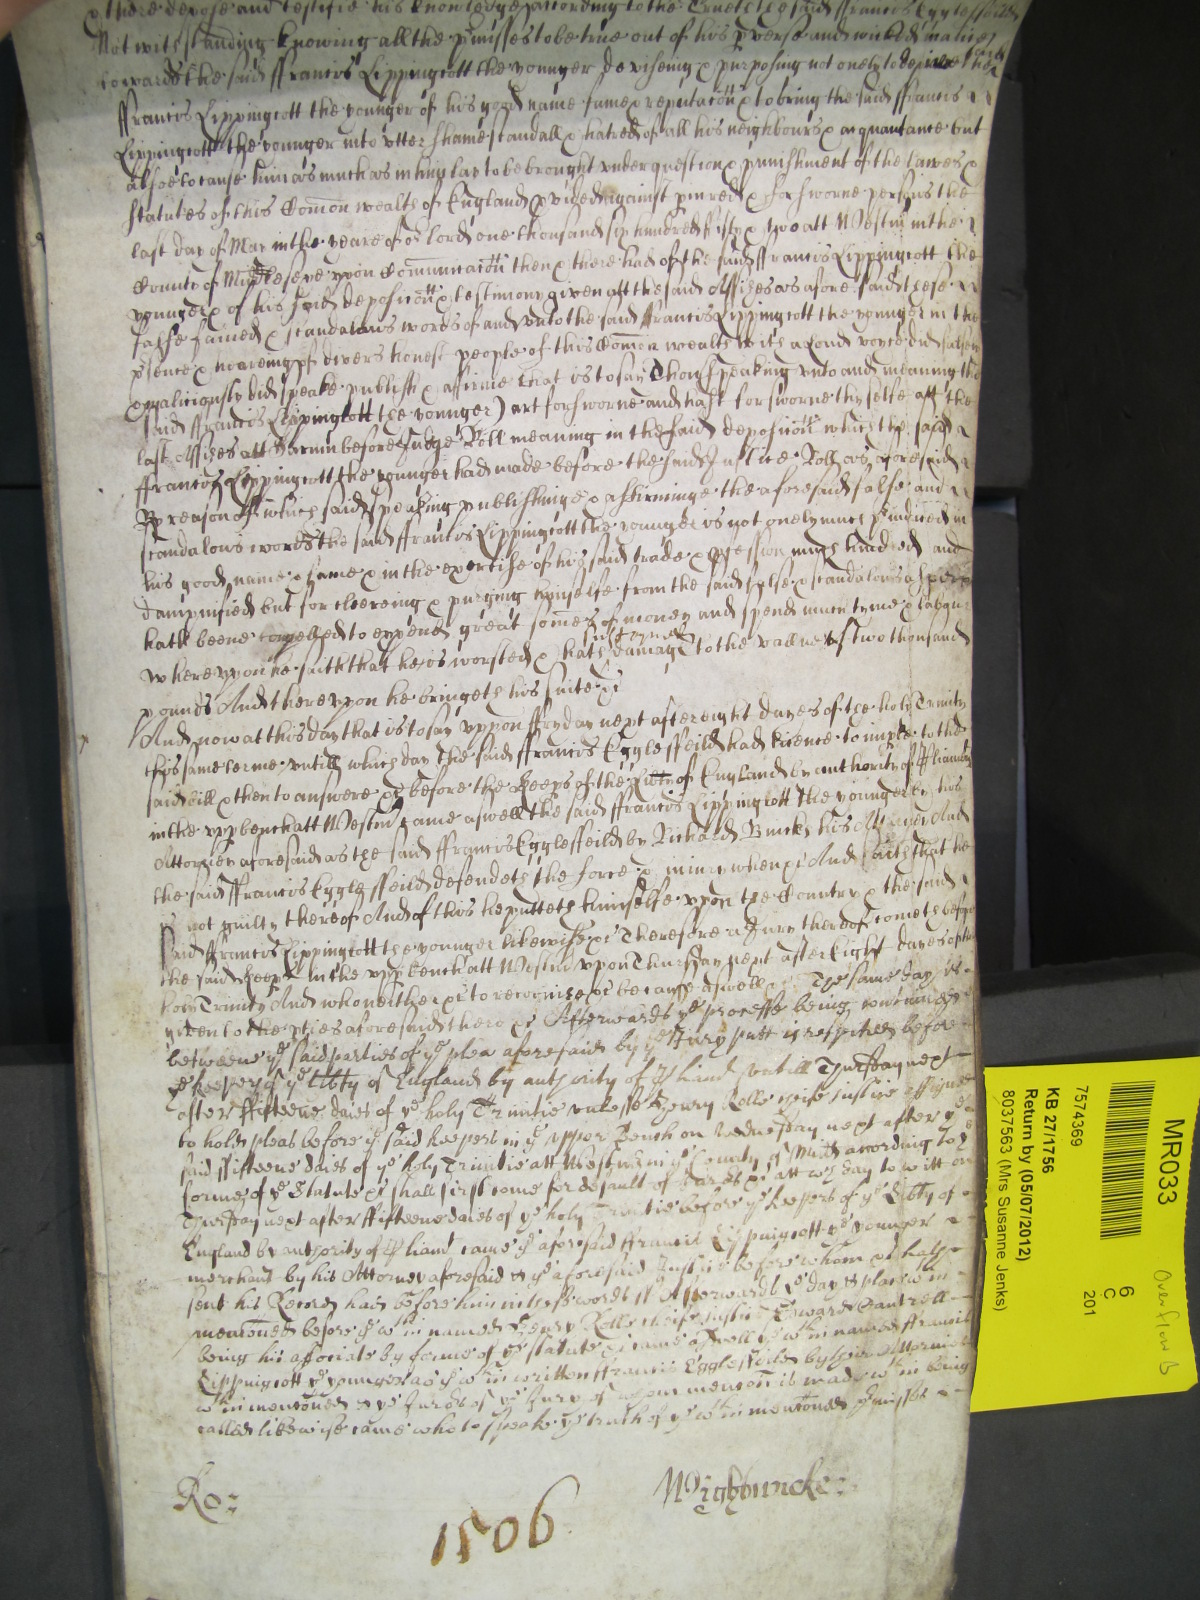 there depose and testifie his knowledge according to the said ffrancis Egglesfeild
Notwithstanding knowing all the pmisses to be true out of his pverse and wicked malice
towards the said ffrancis Lippingcott the younger deviseing & purposing not onely to deprive the said
ffrancis Lippingcott the younger of his good name fame & reputacõn & to bring the said ffrancis
Lippingcott the younger into utter shame scandall & hatred of all his neighbours & acquaintance but
alsoe to cause him as much as in him lay to be brought under question & punishment of the lawes &
statutes of this Comon wealth of England pvided against piured & forsworne persons the
last day of May in the yeare of or lord one thousand six hundred fifty & two att Westm in the
County of Midd upon Communicacõn then & there had of the said ffrancis Lippingcott the
younger & of his said deposicõn & testimony given att the said Assizes as aforesaid these
false fained & scandalous words of and unto the said ffrancis Lippingcott the younger in the
psence & heareing of divers honest people of this Comon wealth with a loud voyce did falsely
& malitiously did speake publish & affirme that is to say Thou (speaking unto and meaning the
said ffrancis Lippingcott the younger) art forsworne and hast forsworne thy selfe att the
last Assizes att before Judge Roll meaning in the said deposicõn which the said
ffrancis Lippingcott the younger had made before the said Justice Roll as aforesaid
By reason of which said speaking publishinge & affirminge the aforesaid false and
scandalous words the said ffrancis Lippingcott the younger is not onely much piudiced in
his good name & fame & in the exercise of his said trade & pfession much hindred and
dampnified but for cleereing & purging himselfe from the said false & scandalous aspersions
hath beene compelled to expend great somes of money and spend much tyme & labour
Whereupon he saith that he is worsted & hath susteyned damage to the vallue of two thousand
pounds And thereupon he bringeth his suite &c
And now at this day that is to say uppon ffryday next after eight dayes of the holy Trinity
this same terme untill which day the said ffrancis Egglesfeild had licence to imple to the
said bill & then to answere &c before the Keeps of the Libty of England by authority of Pliament
in the upp bench att Westm came aswell the said ffrancis Lippingcott the younger by his
Attorney aforesaid as the said ffrancis Egglesfeild by Richard Buck his Attorney And
the said ffrancis Egglesfeild defendeth the force & iniury when &c And saith that he
is not guilty thereof And of this he putteth himselfe upon the Country & the said
said ffrancis Lippingcott the younger likewise &c Therefore a Jury thereof cometh before
the said Keeps in the upp bench att Westm upon Thursday next after Eight dayes of the
holy Trinity And who neither &c to recognise &c because aswell &c The same day is
given to the pties aforesaid there &c Afterwards ye processe being continued
betweene ye said parties of ye plea aforesaid by ye Jury putt is respited before
ye Keepers of ye Libty of England by authority of Pliamt untill Thursday next
after ffifteene daies of ye holy Trinitie unlesse Henry Rolle cheife Justice assigned
to hold pleas before ye said keepers in ye upper Bench on Wednesday next after ye
said ffifteene daies of ye holy Trinitie att Westm in ye County of Midd according to ye
forme of ye Statute &c shall first come for default of Jurors &c att wch day to witt on
Thursday next after ffifteene daies of ye holy Trinitie before ye Keepers of ye Libty of
England by authority of Pliamt came ye aforesaid ffrancis Lippingcott ye younger
merchant by his Attorney aforesaid & ye aforesaid Justice before whom &c hath
sent his Record had before him in thess words ss Afterwards ye day & place wthin
mencõned before ye wthin named Henry Rolle cheife Justice Edward Cantrell
being his associate by forme of ye statute &c came aswell ye wthin named ffrancis
Lippingcott ye younger as ye wthin written ffrancis Egglesfeild by their Attornies
wthin mencõned & ye Jurors of ye Jury of whom mencõn is made wthin being
called likewise came who to speake ye truth of ye wthin mencõned pmisses
Ro:
Wightwicke:
1506
MR033
Overflow B
6
C
201
7574369
KB 27/1756
Return by (05/07/2012)
8037563 (Mrs Susanne Jenks)